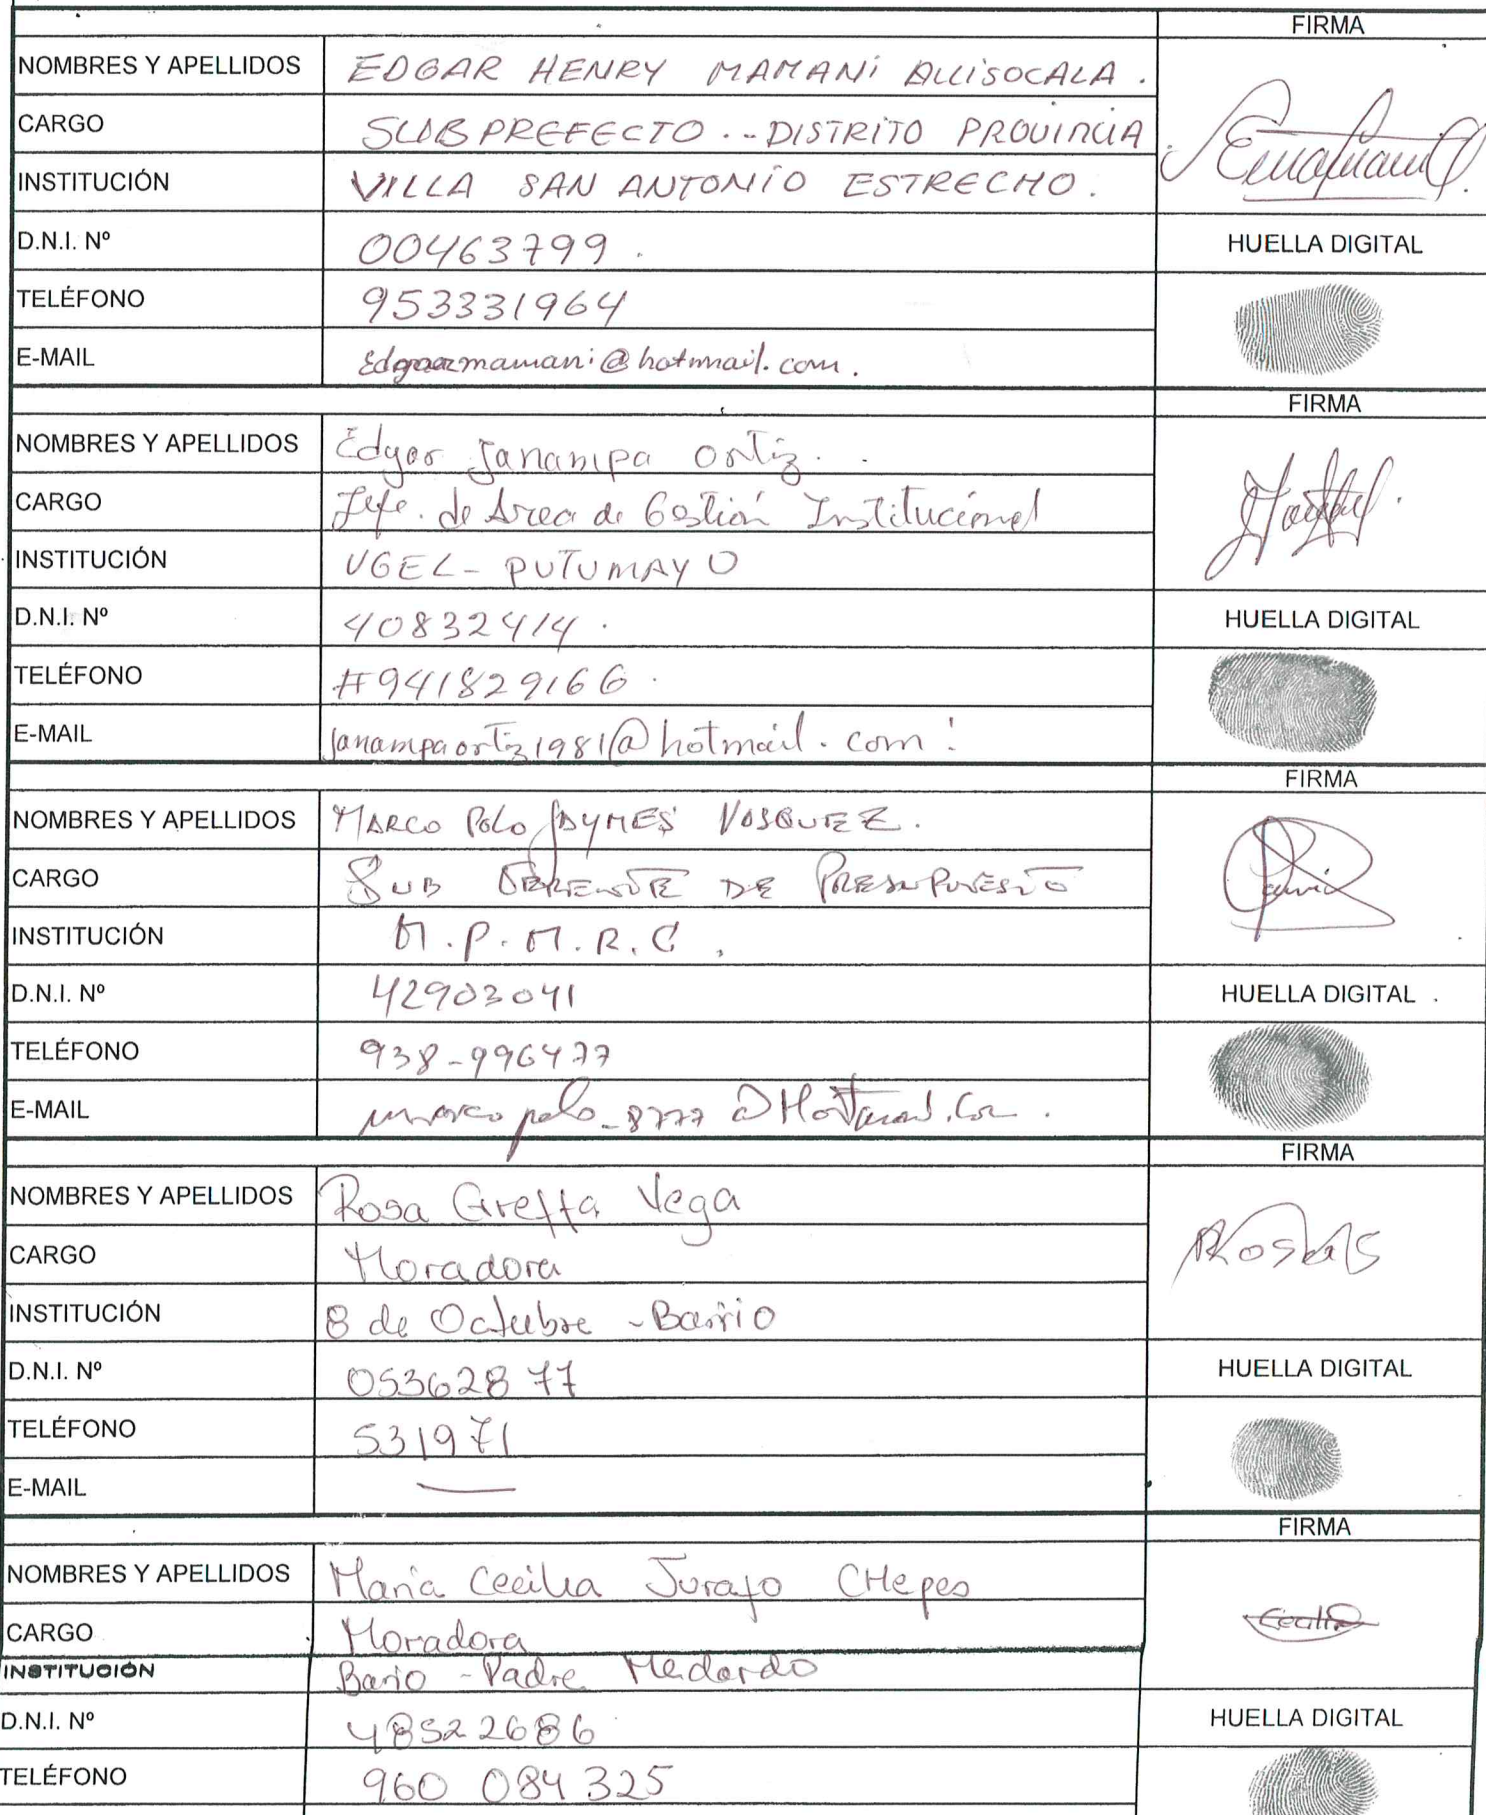 FIRMA
NOMBRES Y APELLIDOS EDGAR HENRY MAMANI ALLISOCALA.
CARGO SUBPREFECTO.-- DISTRITO PROVINCIA
INSTITUCIÓN VILLA SAN ANTONIO ESTRECHO.
D.N.I. Nº 00463799.
HUELLA DIGITAL
TELÉFONO 953331964
E-MAIL Edgarmamani@hotmail.com.
FIRMA
NOMBRES Y APELLIDOS Edgar Janampa Ortiz.
CARGO Jefe. de Area de Gestión Institucional
INSTITUCIÓN UGEL- PUTUMAYO
D.N.I. Nº 40832414.
HUELLA DIGITAL
TELÉFONO #941829166.
E-MAIL Janampaortiz1981@hotmail.com.
FIRMA
NOMBRES Y APELLIDOS MARCO POLO JAYMES VASQUEZ.
CARGO SUB GERENTE DE PRESUPUESTO
INSTITUCIÓN M.P.M.R.C.
D.N.I. Nº 42903041
HUELLA DIGITAL
TELÉFONO 938-996477
E-MAIL marcopolo_8777@Hotmail.Com.
FIRMA
NOMBRES Y APELLIDOS Rosa Greffa Vega
CARGO Moradora
INSTITUCIÓN 8 de Octubre - Barrio
D.N.I. Nº 05362877
HUELLA DIGITAL
TELÉFONO 531971
E-MAIL —
FIRMA
NOMBRES Y APELLIDOS Maria Cecilia Jurajo CHepes
Cecilia
CARGO Moradora
INSTITUCIÓN Bario - Padre Medardo
D.N.I. Nº 48522686
HUELLA DIGITAL
TELÉFONO 960 084 325